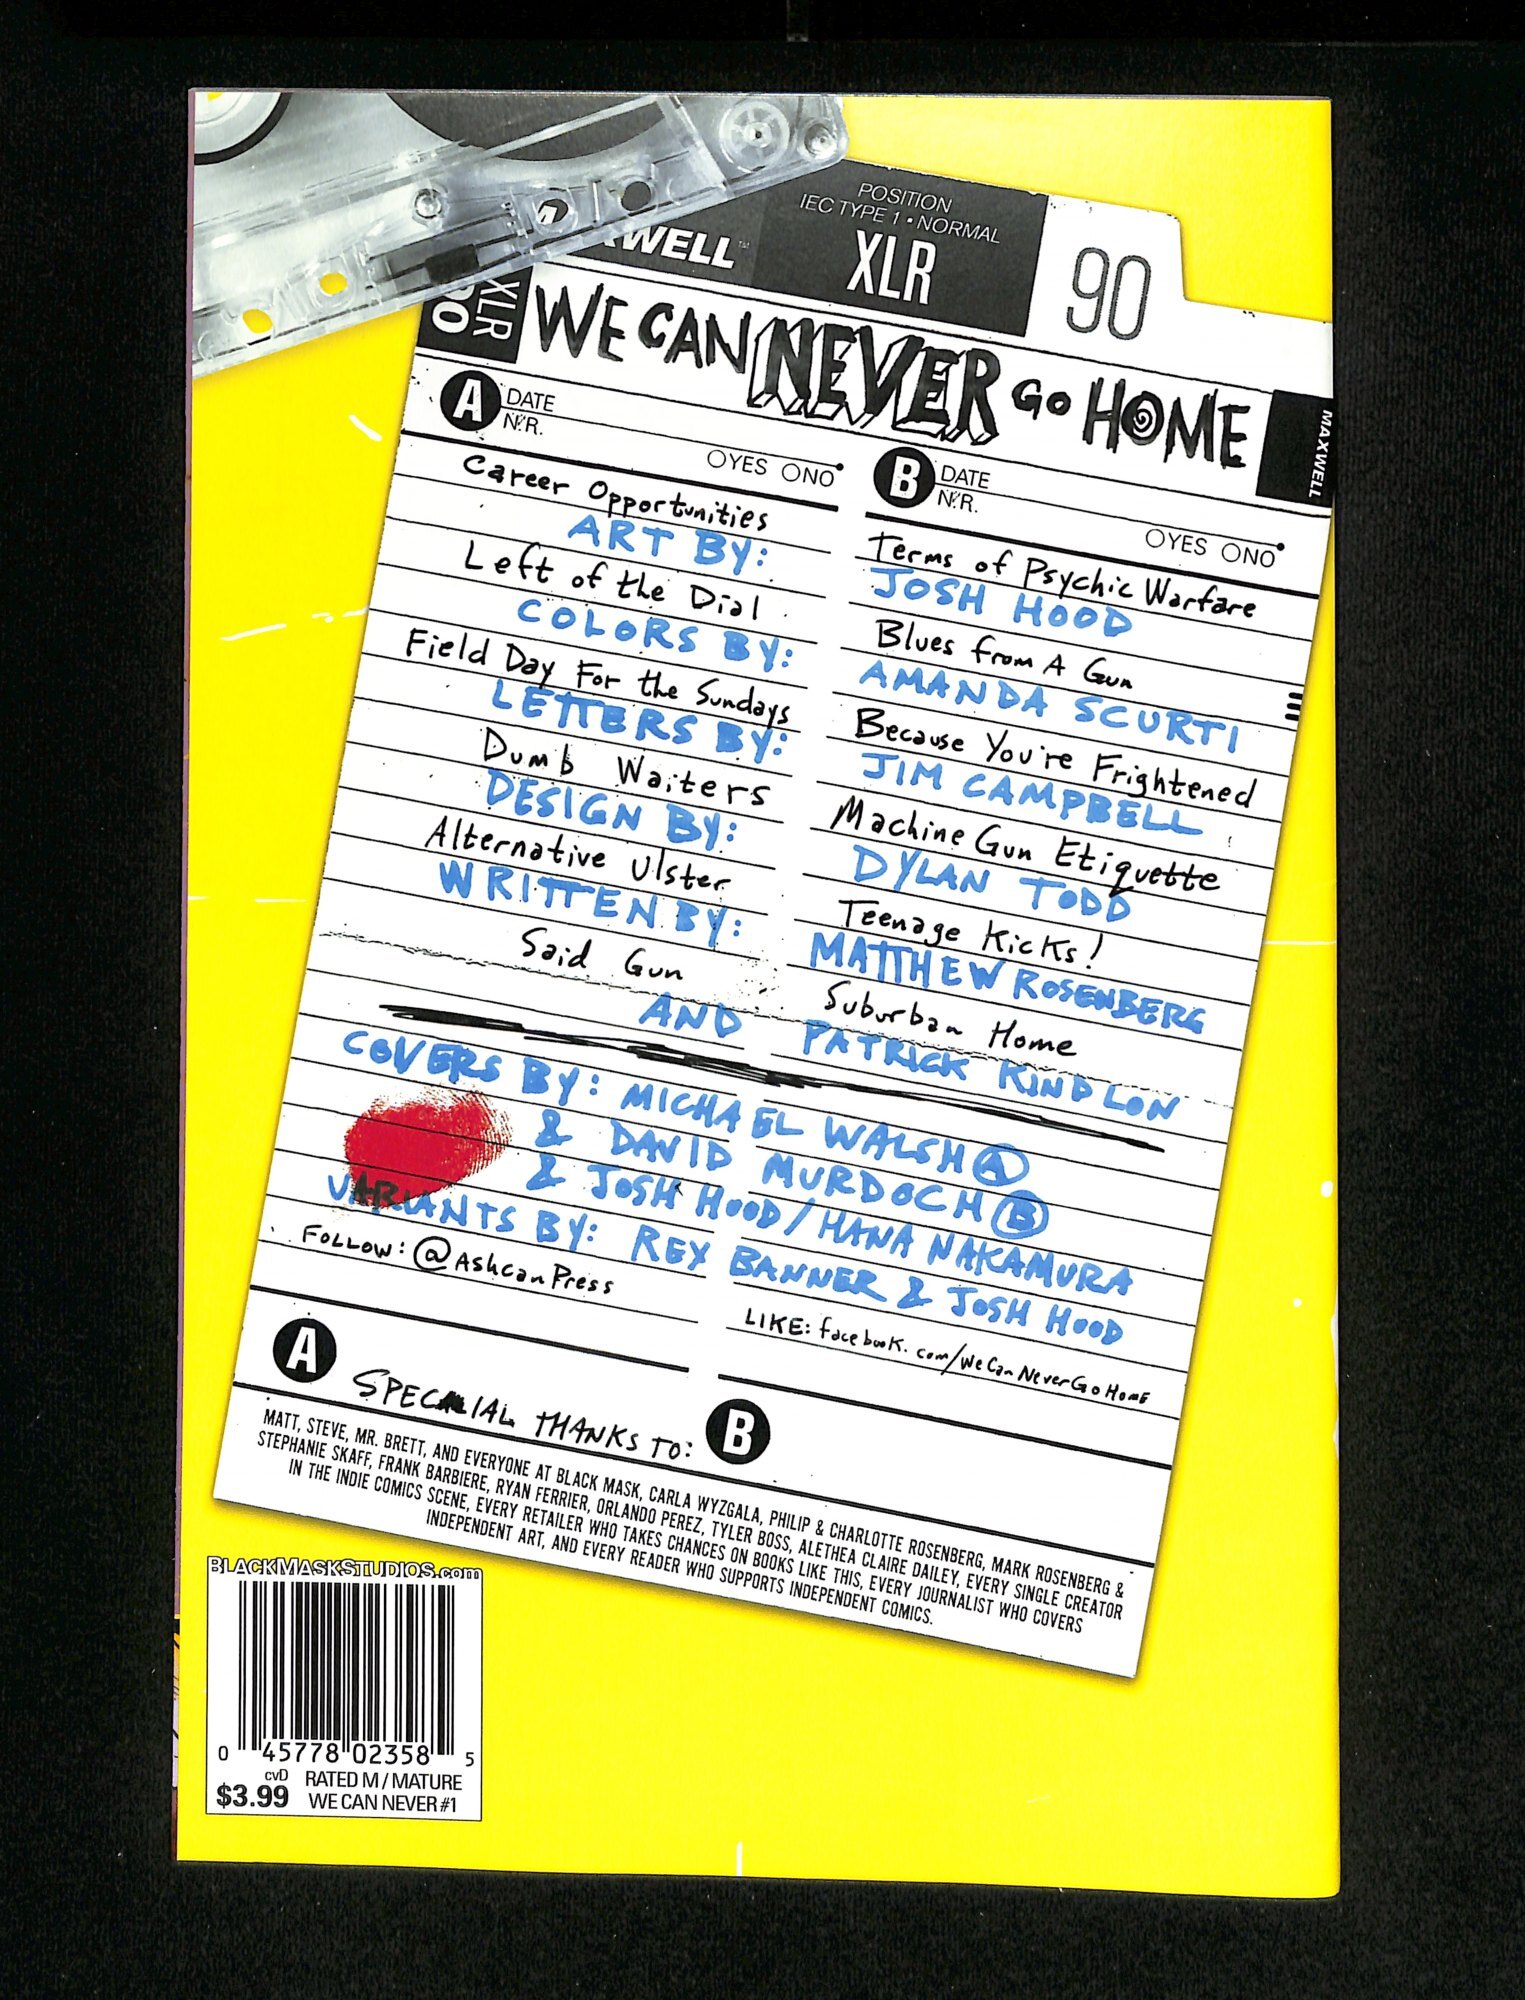 POSITION
IEC TYPE 1 • NORMAL
XWELL™
XLR
90
XLR
WE CAN NEVER GO HOME
MAXWELL
A DATE
N.R.
OYES ONO
B DATE
N.R.
OYES ONO
Career Opportunities
Terms of Psychic Warfare
ART BY:
JOSH HOOD
Left of the Dial
Blues from A Gun
COLORS BY:
AMANDA SCURTI
Field Day For the Sundays
Because You're Frightened
LETTERS BY:
JIM CAMPBELL
Dumb Waiters
Machine Gun Etiquette
DESIGN BY:
DYLAN TODD
Alternative Ulster
Teenage Kicks!
WRITTEN BY:
MATTHEW ROSENBERG
Said Gun
Suburban Home
AND
PATRICK KINDLON
COVERS BY: MICHAEL WALSH A
& DAVID MURDOCH B
& JOSH HOOD / HANA NAKAMURA
VARIANTS BY: REX BANNER & JOSH HOOD
FOLLOW: @AshcanPress
LIKE: facebook.com/WeCanNeverGoHome
A
SPECIAL THANKS TO:
B
MATT, STEVE, MR. BRETT, AND EVERYONE AT BLACK MASK, CARLA WYZGALA, PHILIP & CHARLOTTE ROSENBERG, MARK ROSENBERG &
STEPHANIE SKAFF, FRANK BARBIERE, RYAN FERRIER, ORLANDO PEREZ, TYLER BOSS, ALETHEA CLAIRE DAILEY, EVERY SINGLE CREATOR
IN THE INDIE COMICS SCENE, EVERY RETAILER WHO TAKES CHANCES ON BOOKS LIKE THIS, EVERY JOURNALIST WHO COVERS
INDEPENDENT ART, AND EVERY READER WHO SUPPORTS INDEPENDENT COMICS.
BLACKMASKSTUDIOS.com
0 45778 02358 5
cvD RATED M / MATURE
$3.99 WE CAN NEVER #1